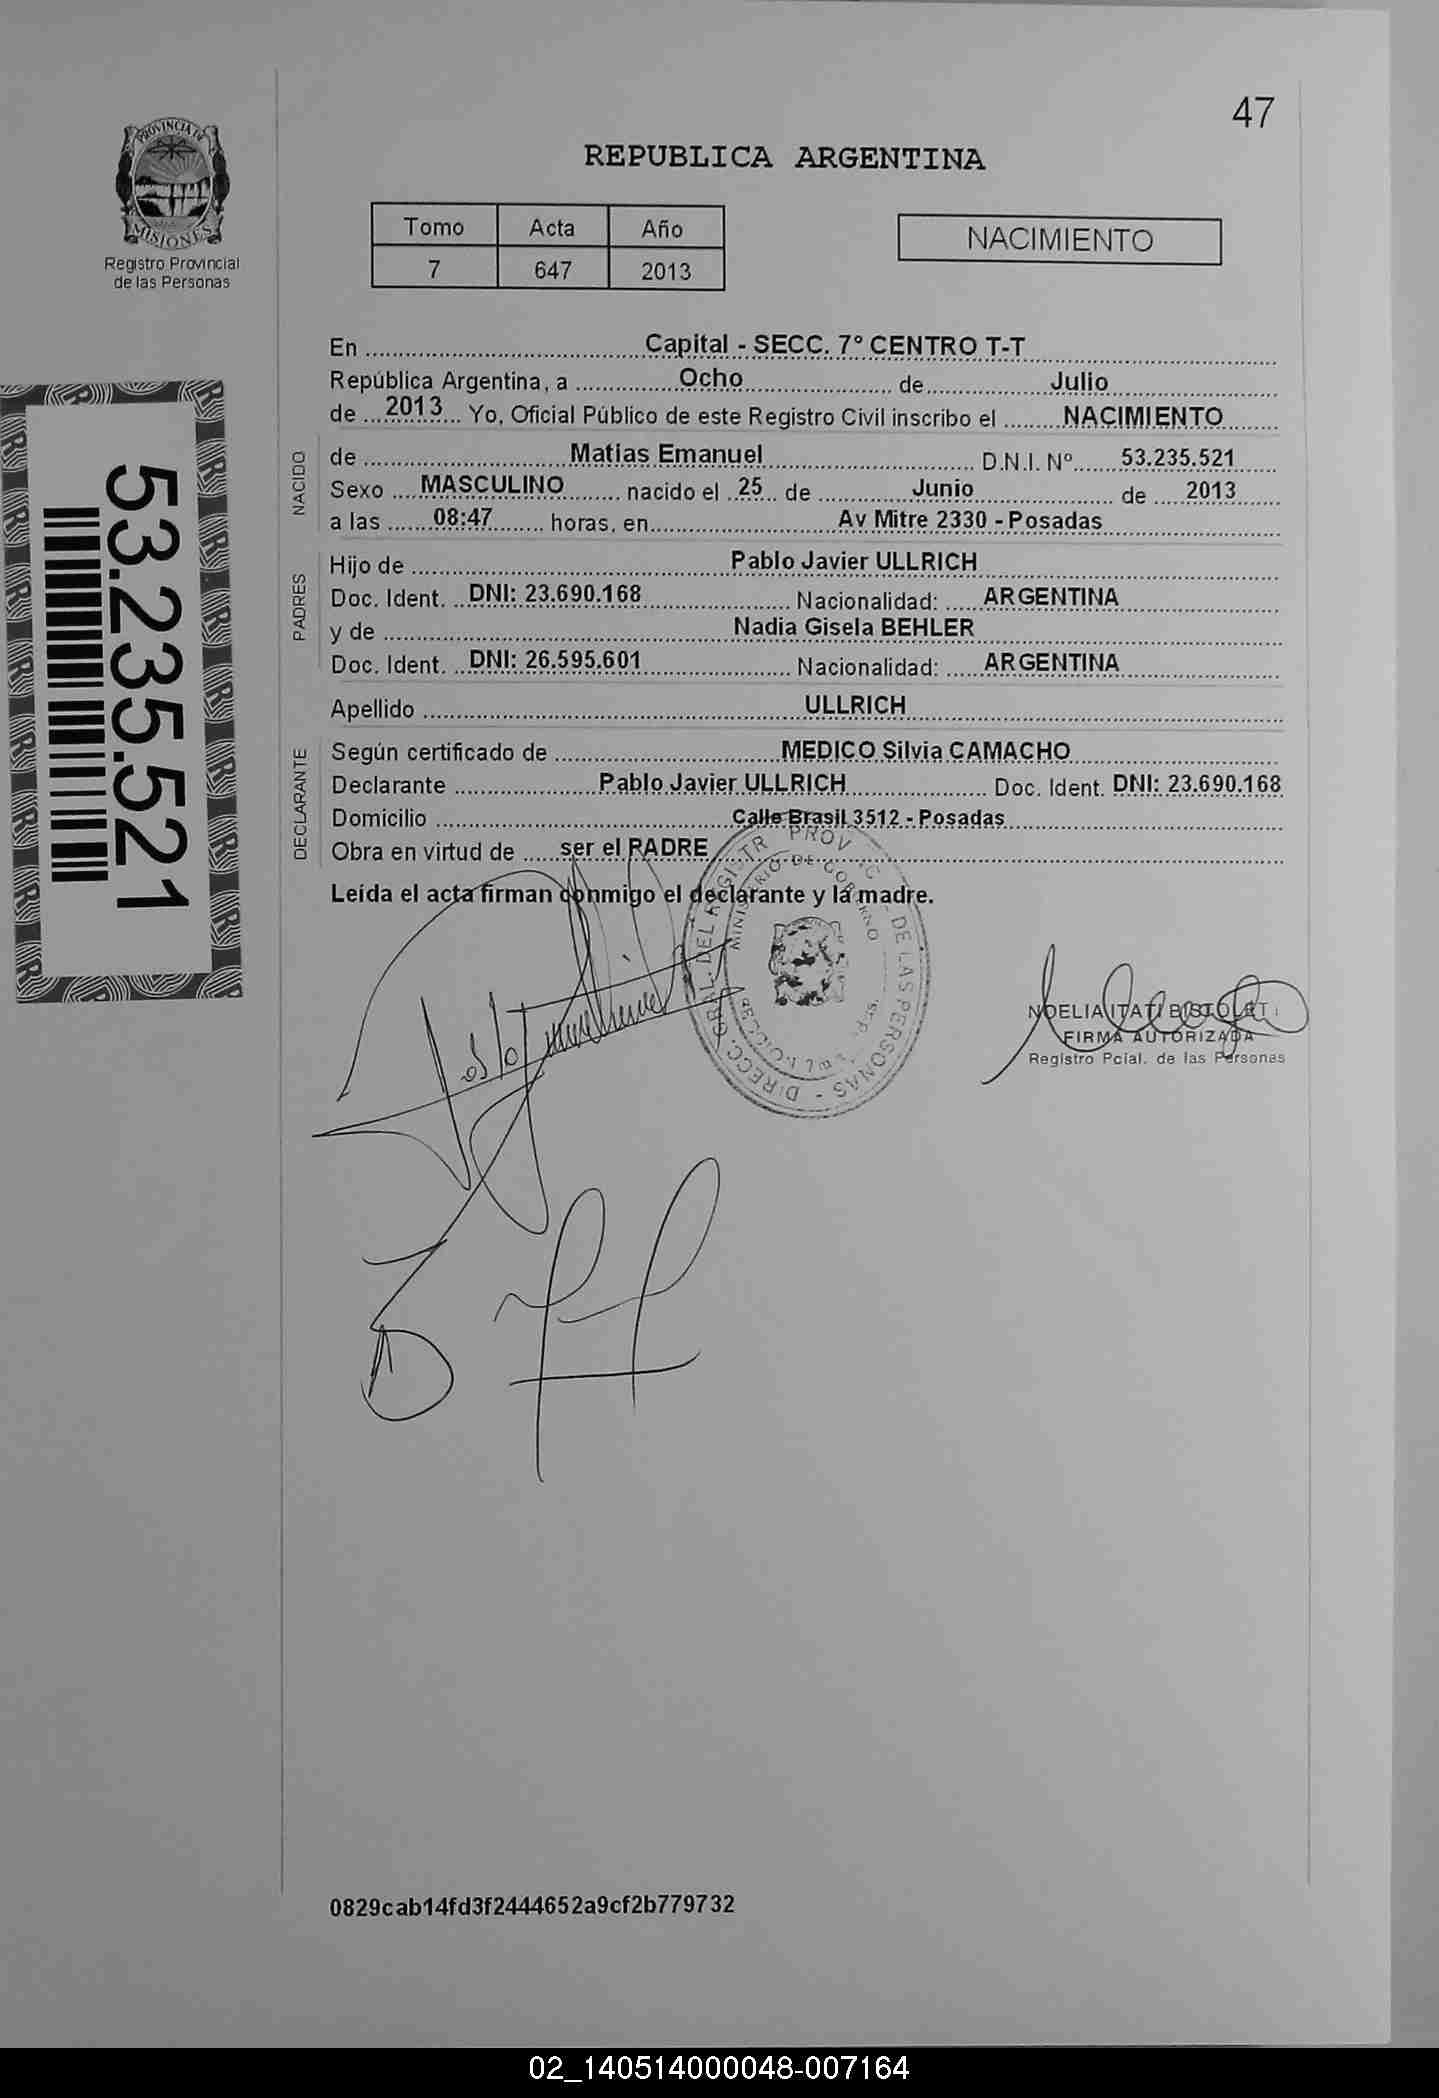 47
PROVINCIA DE
MISIONES
Registro Provincial
de las Personas
REPUBLICA ARGENTINA
Tomo Acta Año
7 647 2013
NACIMIENTO
En Capital - SECC. 7° CENTRO T-T
República Argentina, a Ocho de Julio
de 2013 Yo, Oficial Público de este Registro Civil inscribo el NACIMIENTO
NACIDO
de Matias Emanuel D.N.I. Nº 53.235.521
Sexo MASCULINO nacido el 25 de Junio de 2013
a las 08:47 horas, en Av Mitre 2330 - Posadas
PADRES
Hijo de Pablo Javier ULLRICH
Doc. Ident. DNI: 23.690.168 Nacionalidad: ARGENTINA
y de Nadia Gisela BEHLER
Doc. Ident. DNI: 26.595.601 Nacionalidad: ARGENTINA
Apellido ULLRICH
DECLARANTE
Según certificado de MEDICO Silvia CAMACHO
Declarante Pablo Javier ULLRICH Doc. Ident. DNI: 23.690.168
Domicilio Calle Brasil 3512 - Posadas
Obra en virtud de ser el PADRE
Leída el acta firman conmigo el declarante y la madre.
53.235.521
DE LAS PERSONAS - DIRECC. GRAL. DEL
MINISTERIO DE GOBIERNO
NOELIA ITATI
FIRMA AUTORIZADA
Registro Pcial. de las Personas
0829cab14fd3f2444652a9cf2b779732
02_140514000048-007164